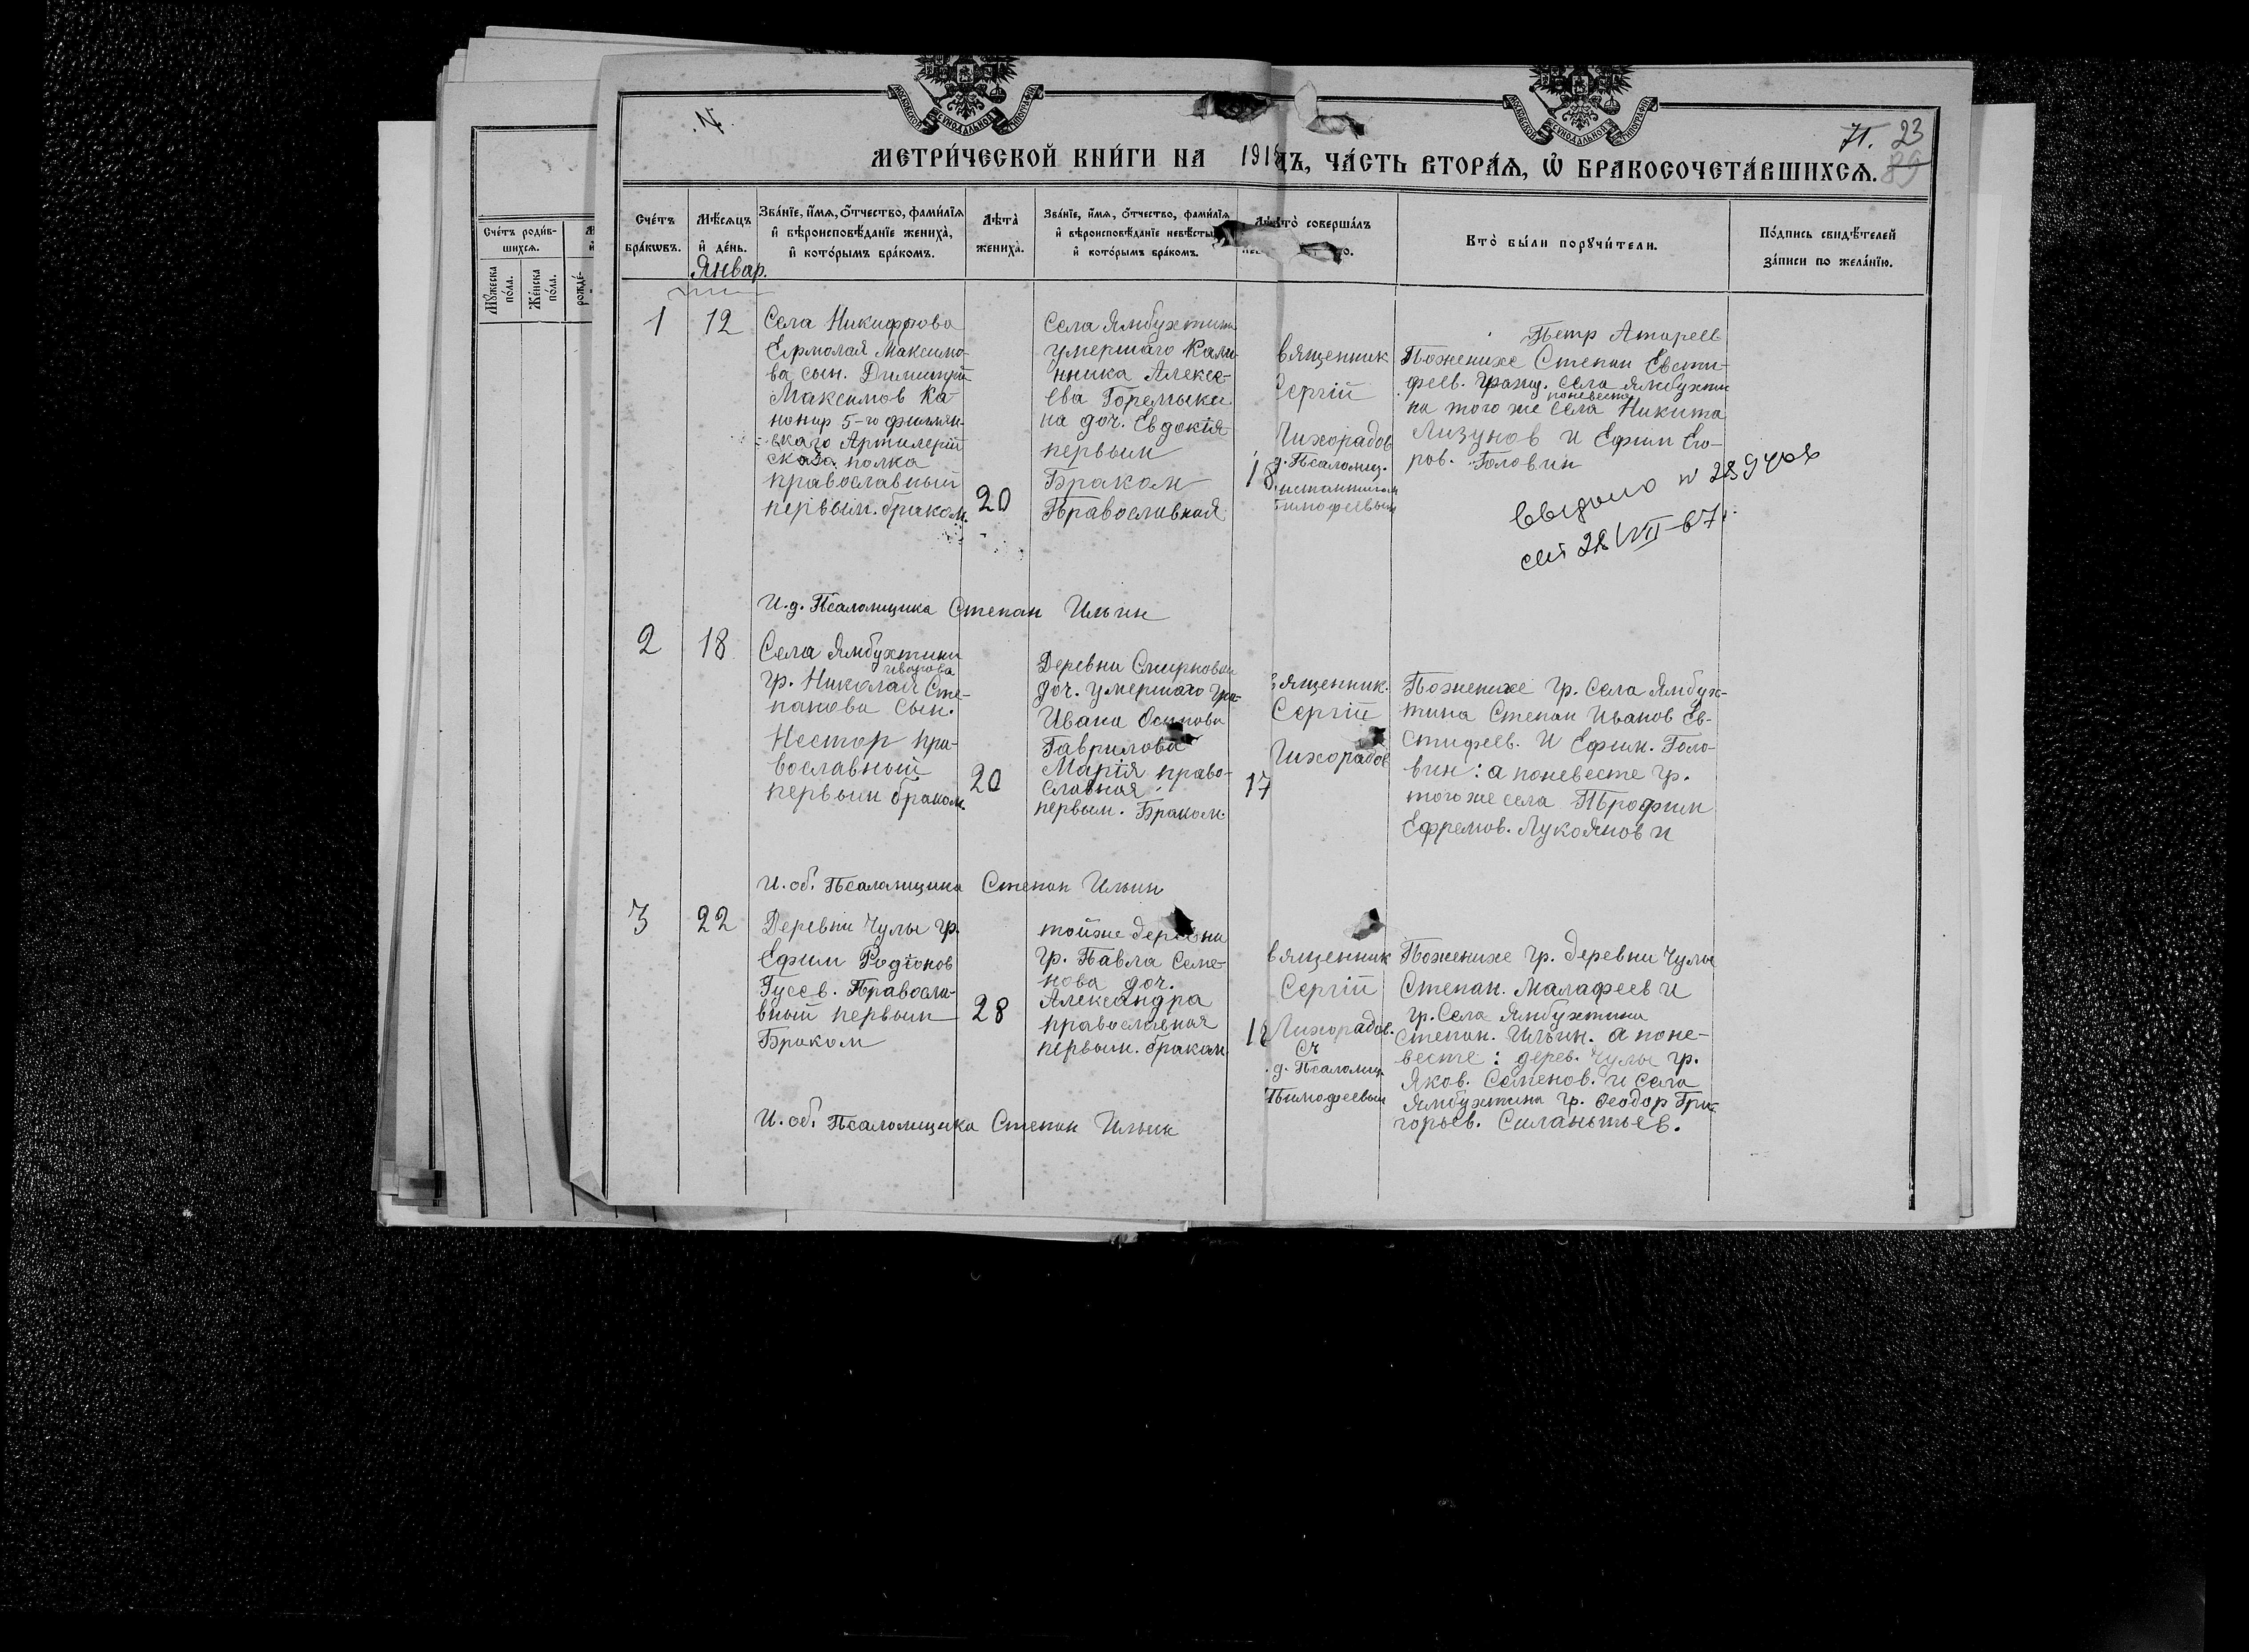 МОСКОВСКОЙ СѴНОДАЛЬНОЙ ТИПОГРАФІИ
МОСКОВСКОЙ СѴНОДАЛЬНОЙ ТИПОГРАФІИ
71. 23
89
МЕТРИ́ЧЕСКОЙ КНИ́ГИ НА 191 ДЪ, ЧА́СТЬ ВТОРА́Я, Ѡ БРАКОСОЧЕТА́ВШИХСЯ.
Сче́тъ роди́в-
шихся.
Мꙋжеска по́ла.
Же́нска по́ла.
рожде́-
Сче́тъ бра́кѡвъ.
Мѣ́сяцъ и҆ де́нь.
Зва́нїе, и҆́мя, ѻ҆́тчество, фами́лїя
и҆ вѣроисповѣ́данїе жениха̀,
и҆ кото́рымъ бра́комъ.
Лѣта̀ жениха̀.
Зва́нїе, и҆́мя, ѻ҆́тчество, фами́лїя
и҆ вѣроисповѣ́данїе невѣ́сты
и҆ кото́рымъ бра́комъ.
кто̀ соверша́лъ
Кто̀ бы́ли порꙋчи́тели.
По́дпись свидѣ́телей
за́писи по жела́нїю.
Январ.
1 12
Села Никифрова
Ермолая Максимо-
ва сын. Димитрий
Максимов Ка-
нонир 5-го финлян-
скаго Артилерий
скаго полка
православный
первым. браком.
20
Села Ямбухтина
умершаго Кали-
нника Алексе-
ева Горемыки
на доч. Евдокія
первым
Браком
Православная
18
священник
Сергій
Тихорадов
д. Псаломщ.
Тимофеевым
Петр Атареев
Поженихе Степан Евсти-
феев. гражд. села Ямбухти
поневеста
на того же села Никита
Лизунов и Ефим Его-
ров. Головин
Выдано N 289
28/VII-67
И.д. Псаломщика Степан Ильин
2 18
Села Ямбухтина
иванова
гр. Николай Сте-
панова сын.
Нестор пра-
вославный
первым браком.
20
Деревни Смирновки
доч. умершаго гра-
Ивана Осипова
Гаврилова
Марія право-
славная
первым. Браком.
17
священник.
Сергій
Тихорадов
Поженихе гр. села Ямбух-
тина Степан Иванов Ев-
стифеев. И Ефим. Голо-
вин: а поневесте гр.
того же села Трофим
Ефремов. Лукоянов и
И. об. Псаломщика Степан Ильин
3 22
Деревни Чулы гр.
Ефим Родіонов
Гусев. Правосла-
вный первым
Браком
28
тойже деревни
гр. Павла Семе-
нова доч.
Александра
православная
первым. браком
18
священник
Сергій
Тихорадов.
Съ
д. Псаломщ.
Тимофеевым
Поженихе гр. деревни Чулы
Степан. Малафеев и
гр. Села Ямбухтина
Степан. Ильин. а поне-
весте: дерев. Чулы гр.
Яков. Семенов. и села
Ямбухтина гр. Феодор Гри-
горьев. Силантьев.
И. об. Псаломщика Степан Ильин